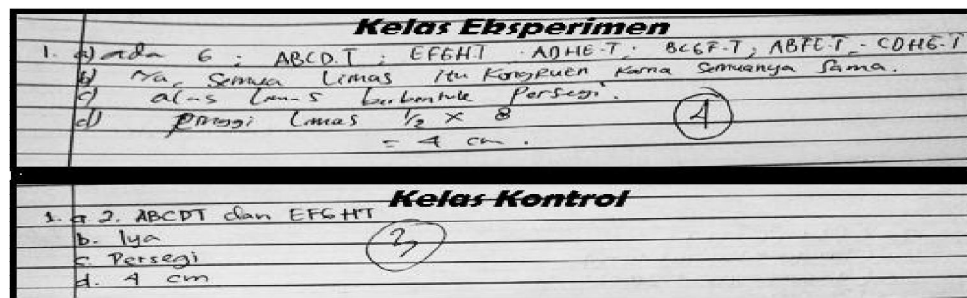 Kelas Eksperimen
1. a) ada 6 : ABCD.T ; EFGH.T . ADHE.T . BCGF.T ; ABFE.T - CDHG.T
b) Iya, Semua Limas itu Kongruen Karna Semuanya Sama.
c) alas Limas berbentuk Persegi.
d) tinggi Limas 1/2 x 8
= 4 cm .
4
Kelas Kontrol
1. a 2. ABCDT dan EFGHT
b. Iya
c. Persegi
d. 4 cm
3